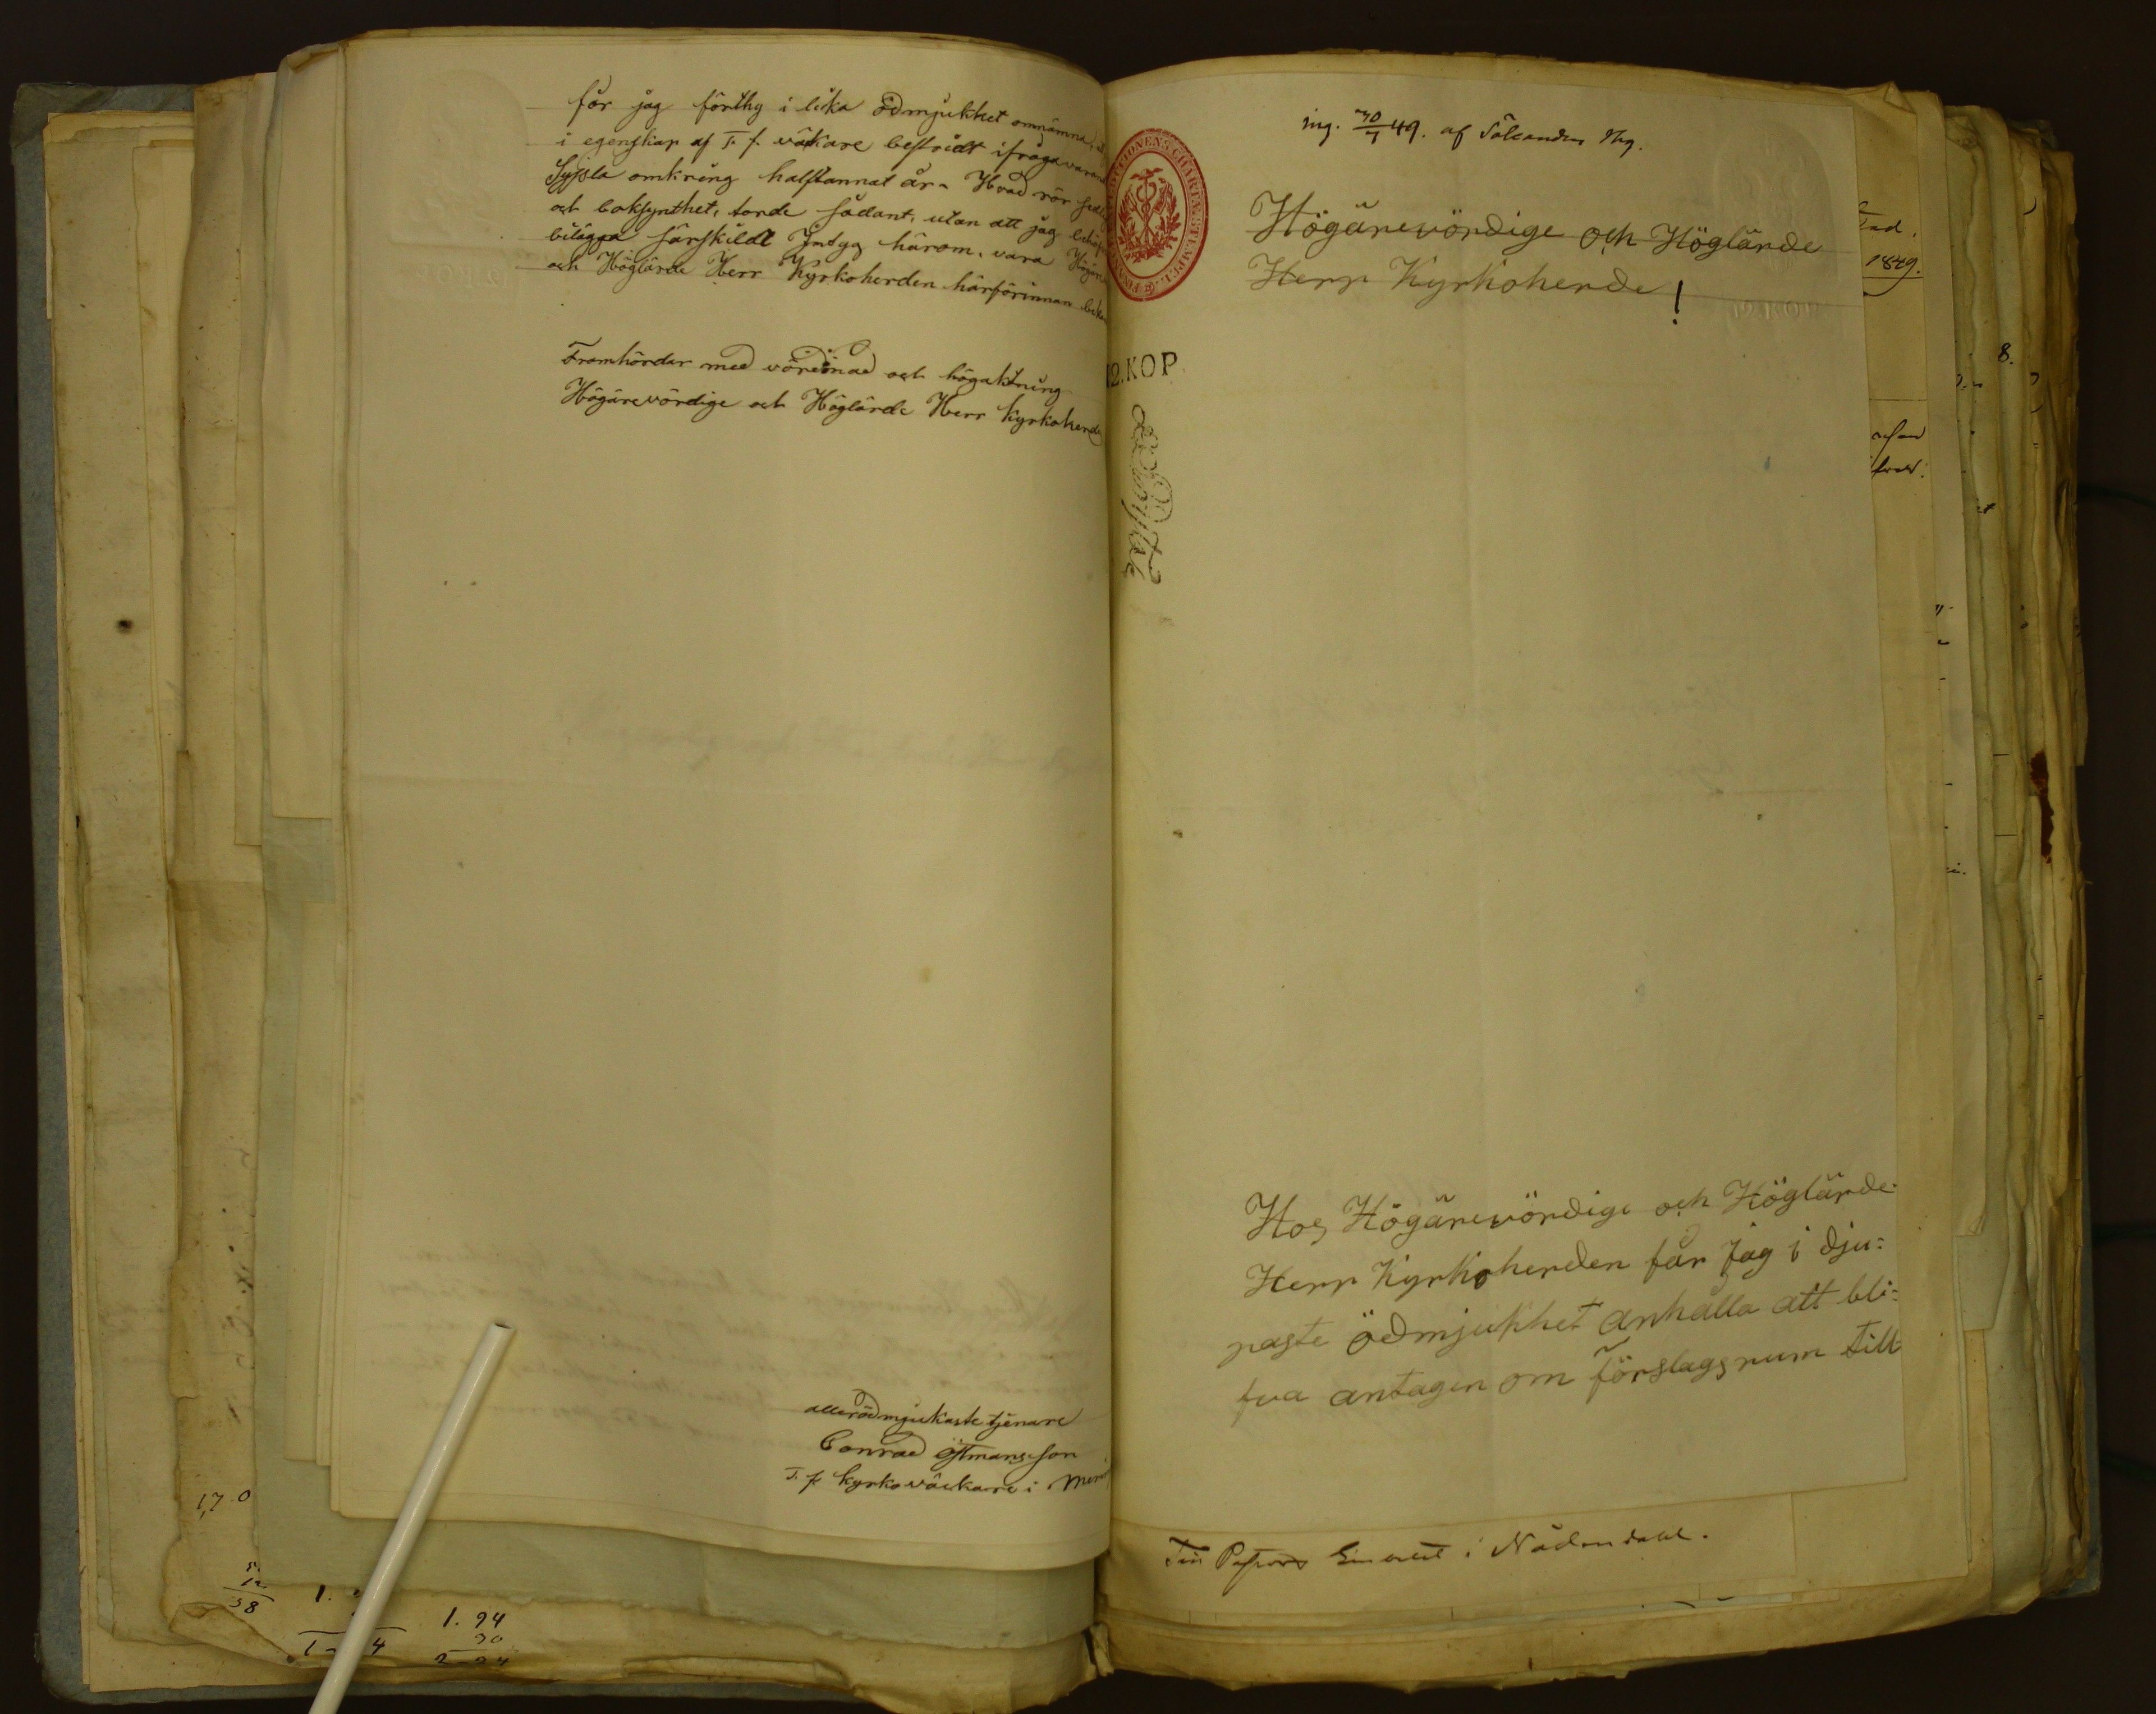 får jag förthy i lika ödmjukhet omnämna,
i egenskap af T. f. väckare bestridt ifrågavaran
Syssla omkring halftannat år. Hvad rör
och boksynthet, torde sådant, utan att jag behöf
bilägga särskildt Intyg härom, vara Högäre
och Höglärde Herr Kyrkoherden härförinnan bek
Framhärdar med vördnad och högaktning
Högärevördige och Höglärde Herr Kyrkoherde
allerödmjukaste tjenare
Conrad Östmansson
T. f. kyrkoväckare i
1.94
30
2-24
ing. 30/7 49. af Sökanden
Högärevördige och Höglärde
Herr Kyrkoherde!
12.KOP
Hos Högärevördige och Höglärde
Herr Kyrkoherden får Jag i dju=
paste ödmjukhet anhålla att bli=
fva antagen om förslagsrum till
Till Pastors Embetet i Nådendahl.
1849.
8.